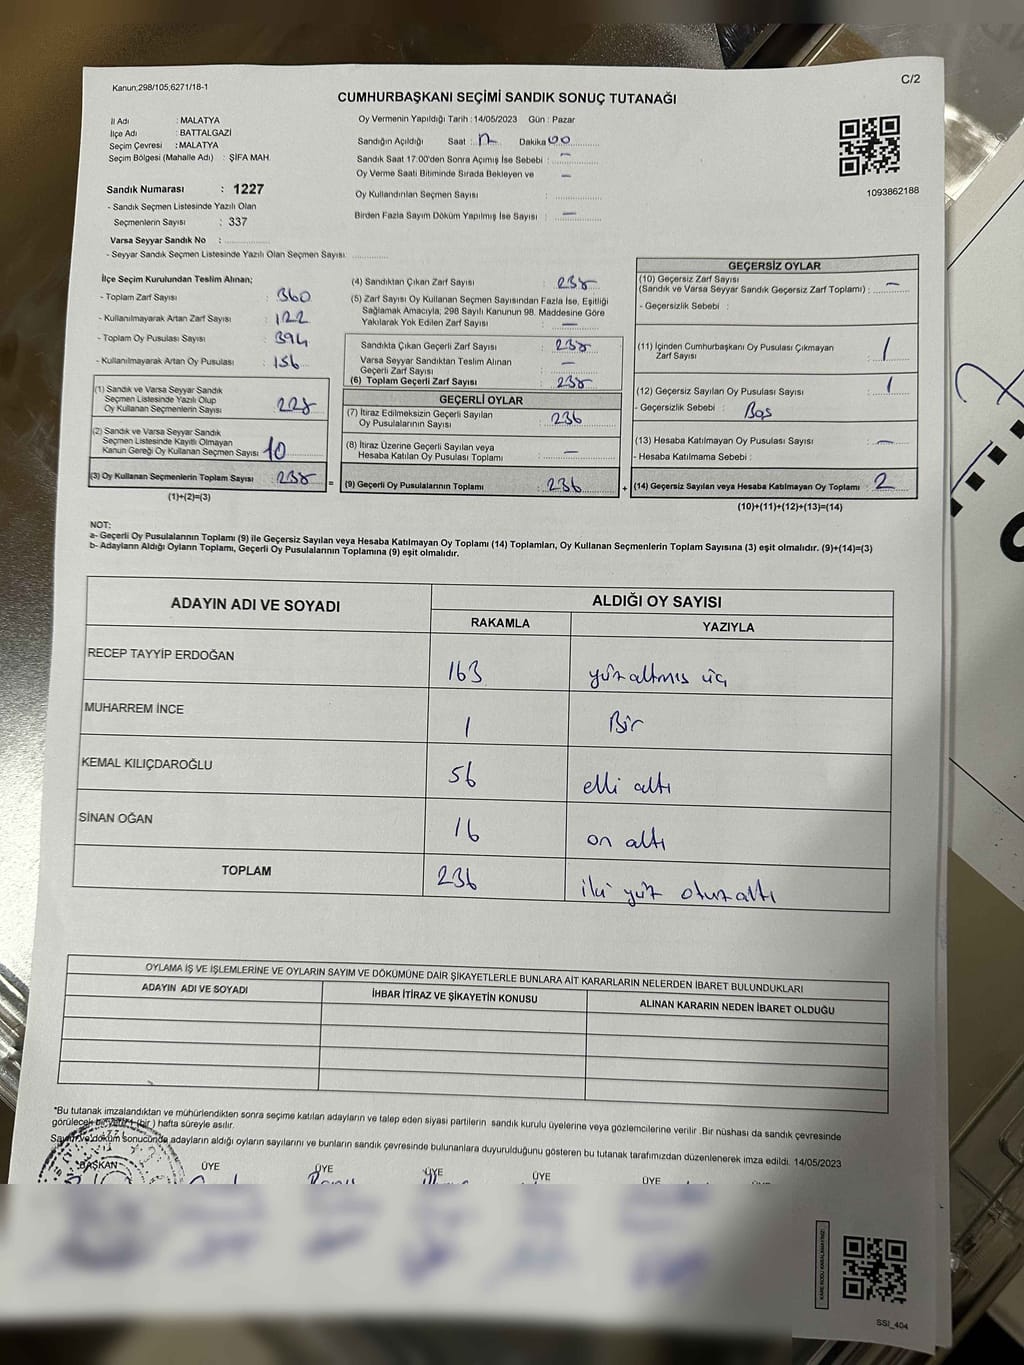 Kanun;298/105,6271/18-1
C/2
CUMHURBAŞKANI SEÇİMİ SANDIK SONUÇ TUTANAĞI
İl Adı : MALATYA
İlçe Adı : BATTALGAZİ
Seçim Çevresi : MALATYA
Seçim Bölgesi (Mahalle Adı) : ŞİFA MAH.
Sandık Numarası : 1227
- Sandık Seçmen Listesinde Yazılı Olan
Seçmenlerin Sayısı : 337
Varsa Seyyar Sandık No :
- Seyyar Sandık Seçmen Listesinde Yazılı Olan Seçmen Sayısı:
Oy Vermenin Yapıldığı Tarih : 14/05/2023 Gün : Pazar
Sandığın Açıldığı Saat : 17 Dakika 00
Sandık Saat 17:00'den Sonra Açımış İse Sebebi : —
Oy Verme Saati Bitiminde Sırada Bekleyen ve —
Oy Kullandırılan Seçmen Sayısı :
Birden Fazla Sayım Döküm Yapılmış İse Sayısı : —
1093862188
İlçe Seçim Kurulundan Teslim Alınan;
- Toplam Zarf Sayısı : 360
- Kullanılmayarak Artan Zarf Sayısı : 122
- Toplam Oy Pusulası Sayısı : 394
- Kullanılmayarak Artan Oy Pusulası : 156
(1) Sandık ve Varsa Seyyar Sandık
Seçmen Listesinde Yazılı Olup
Oy Kullanan Seçmenlerin Sayısı : 228
(2) Sandık ve Varsa Seyyar Sandık
Seçmen Listesinde Kayıtlı Olmayan
Kanun Gereği Oy Kullanan Seçmen Sayısı : 10
(3) Oy Kullanan Seçmenlerin Toplam Sayısı : 238
(1)+(2)=(3)
(4) Sandıktan Çıkan Zarf Sayısı : 238
(5) Zarf Sayısı Oy Kullanan Seçmen Sayısından Fazla İse, Eşitliği
Sağlamak Amacıyla, 298 Sayılı Kanunun 98. Maddesine Göre
Yakılarak Yok Edilen Zarf Sayısı : —
Sandıkta Çıkan Geçerli Zarf Sayısı : 238
Varsa Seyyar Sandıktan Teslim Alınan
Geçerli Zarf Sayısı : —
(6) Toplam Geçerli Zarf Sayısı : 238
GEÇERLİ OYLAR
(7) İtiraz Edilmeksizin Geçerli Sayılan
Oy Pusulalarının Sayısı : 236
(8) İtiraz Üzerine Geçerli Sayılan veya
Hesaba Katılan Oy Pusulası Toplamı : —
= (9) Geçerli Oy Pusulalarının Toplamı : 236
GEÇERSİZ OYLAR
(10) Geçersiz Zarf Sayısı
(Sandık ve Varsa Seyyar Sandık Geçersiz Zarf Toplamı) : —
- Geçersizlik Sebebi :
(11) İçinden Cumhurbaşkanı Oy Pusulası Çıkmayan
Zarf Sayısı : 1
(12) Geçersiz Sayılan Oy Pusulası Sayısı : 1
- Geçersizlik Sebebi : Boş
(13) Hesaba Katılmayan Oy Pusulası Sayısı : —
- Hesaba Katılmama Sebebi :
+ (14) Geçersiz Sayılan veya Hesaba Katılmayan Oy Toplamı : 2
(10)+(11)+(12)+(13)=(14)
NOT:
a- Geçerli Oy Pusulalarının Toplamı (9) ile Geçersiz Sayılan veya Hesaba Katılmayan Oy Toplamı (14) Toplamları, Oy Kullanan Seçmenlerin Toplam Sayısına (3) eşit olmalıdır. (9)+(14)=(3)
b- Adayların Aldığı Oyların Toplamı, Geçerli Oy Pusulalarının Toplamına (9) eşit olmalıdır.
ADAYIN ADI VE SOYADI
ALDIĞI OY SAYISI
RAKAMLA YAZIYLA
RECEP TAYYİP ERDOĞAN 163 yüz altmış üç
MUHARREM İNCE 1 Bir
KEMAL KILIÇDAROĞLU 56 elli altı
SİNAN OĞAN 16 on altı
TOPLAM 236 iki yüz otuz altı
OYLAMA İŞ VE İŞLEMLERİNE VE OYLARIN SAYIM VE DÖKÜMÜNE DAİR ŞİKAYETLERLE BUNLARA AİT KARARLARIN NELERDEN İBARET BULUNDUKLARI
ADAYIN ADI VE SOYADI İHBAR İTİRAZ VE ŞİKAYETİN KONUSU ALINAN KARARIN NEDEN İBARET OLDUĞU
*Bu tutanak imzalandıktan ve mühürlendikten sonra seçime katılan adayların ve talep eden siyasi partilerin sandık kurulu üyelerine veya gözlemcilerine verilir .Bir nüshası da sandık çevresinde
görülecek bir yere 1 (bir ) hafta süreyle asılır.
Sayım ve döküm sonucunda adayların aldığı oyların sayılarını ve bunların sandık çevresinde bulunanlara duyurulduğunu gösteren bu tutanak tarafımızdan düzenlenerek imza edildi. 14/05/2023
BAŞKAN ÜYE ÜYE ÜYE ÜYE ÜYE
SSI_404